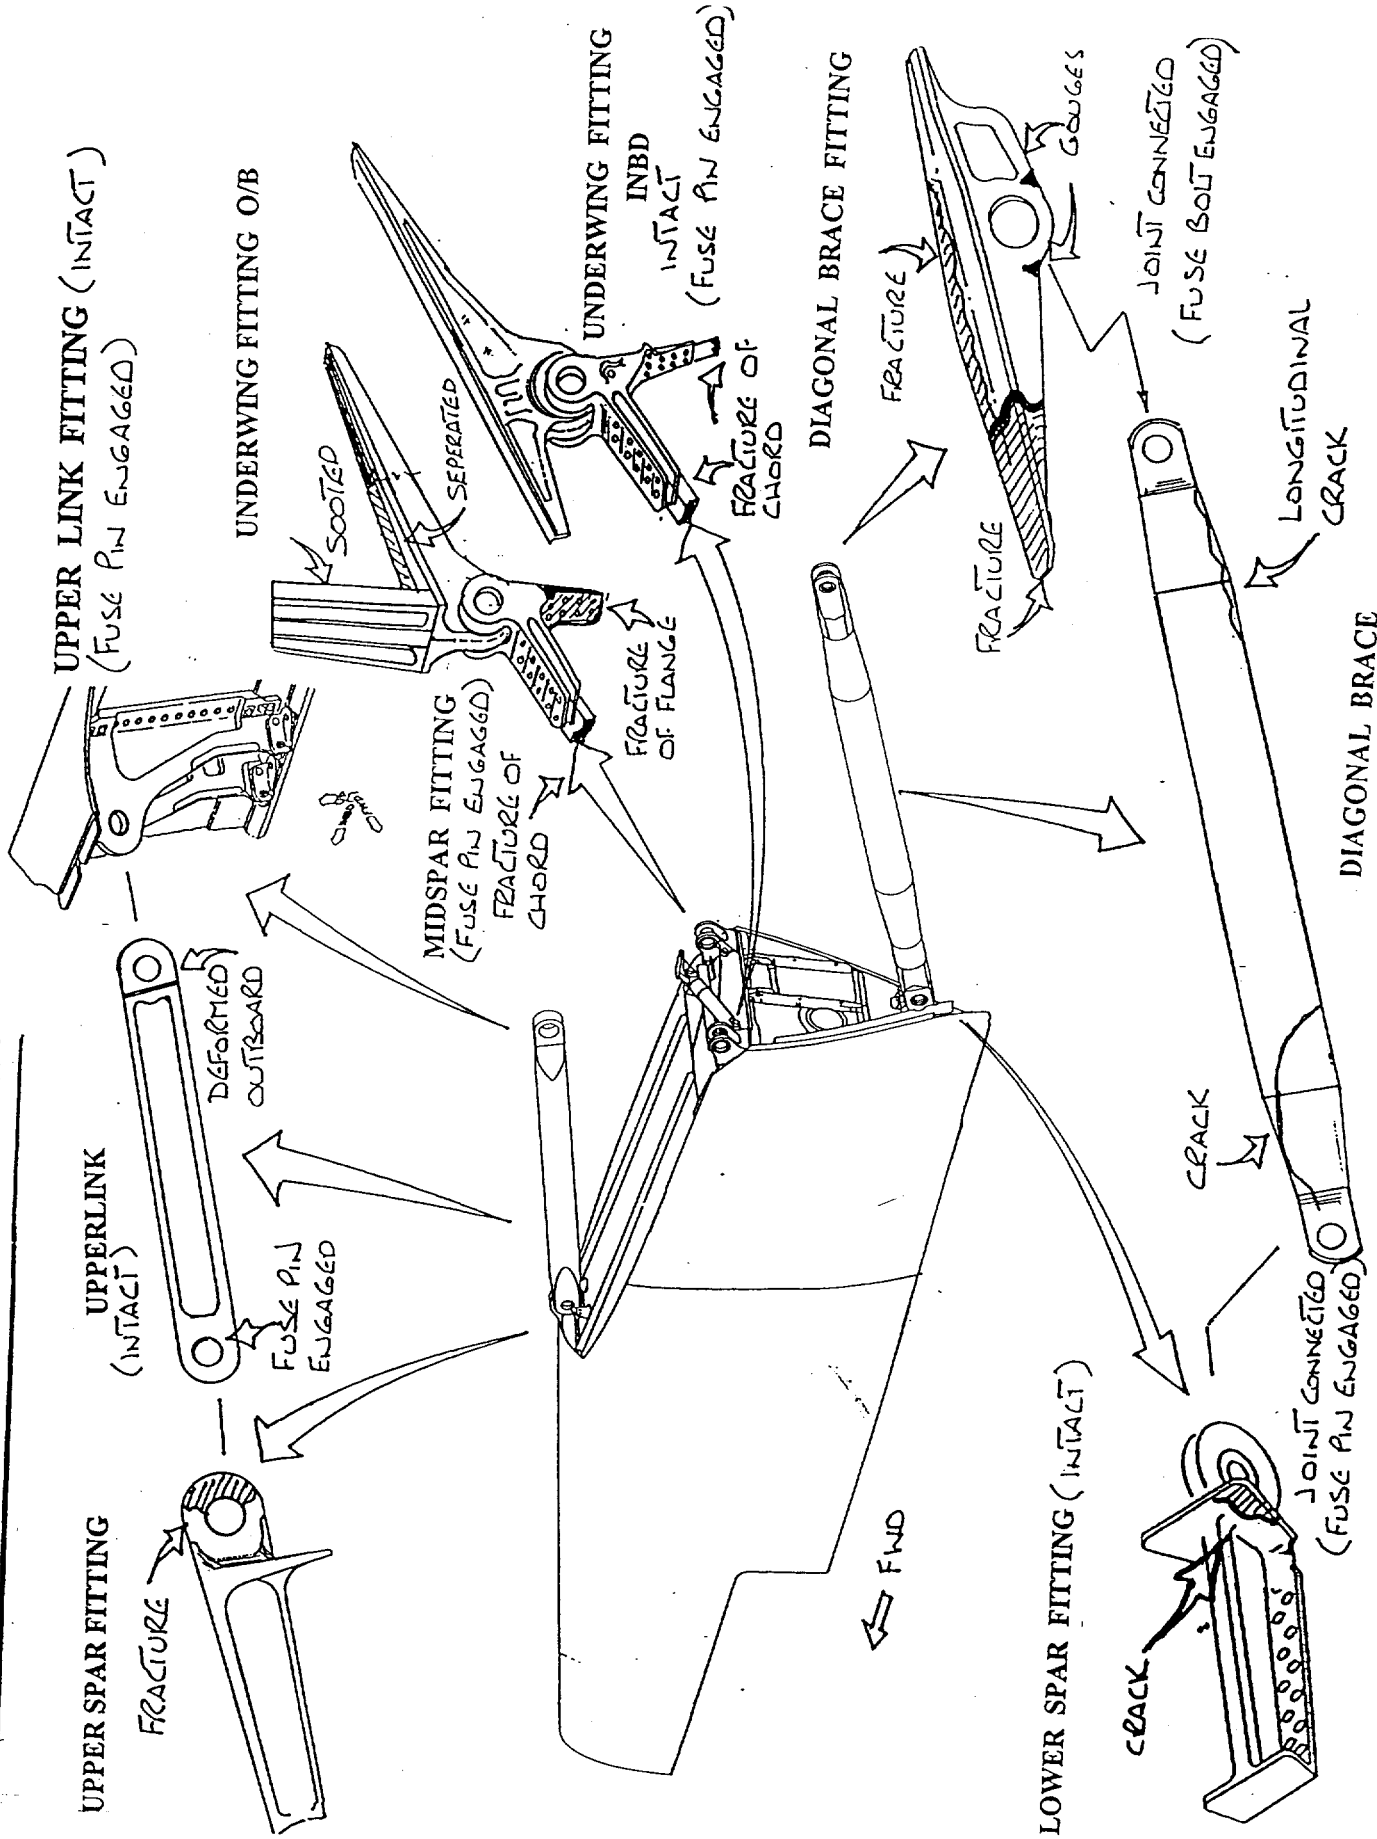 UPPER SPAR FITTING
FRACTURE
UPPERLINK
(INTACT)
FUSE PIN
ENGAGED
DEFORMED
OUTBOARD
UPPER LINK FITTING (INTACT)
(FUSE PIN ENGAGED)
UNDERWING FITTING O/B
SOOTED
SEPERATED
MIDSPAR FITTING
(FUSE PIN ENGAGED)
FRACTURE OF
CHORD
FRACTURE
OF FLANGE
UNDERWING FITTING
INBD
INTACT
(FUSE PIN ENGAGED)
FRACTURE OF
CHORD
DIAGONAL BRACE FITTING
FRACTURE
FRACTURE
GOUGES
JOINT CONNECTED
(FUSE BOLT ENGAGED)
LONGITUDINAL
CRACK
FWD
LOWER SPAR FITTING (INTACT)
CRACK
JOINT CONNECTED
(FUSE PIN ENGAGED)
CRACK
DIAGONAL BRACE